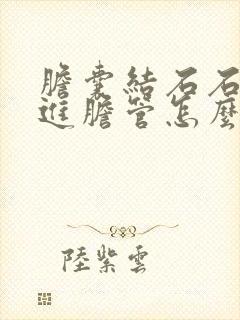 膽囊結石石
進膽管怎麼
陸紫雲